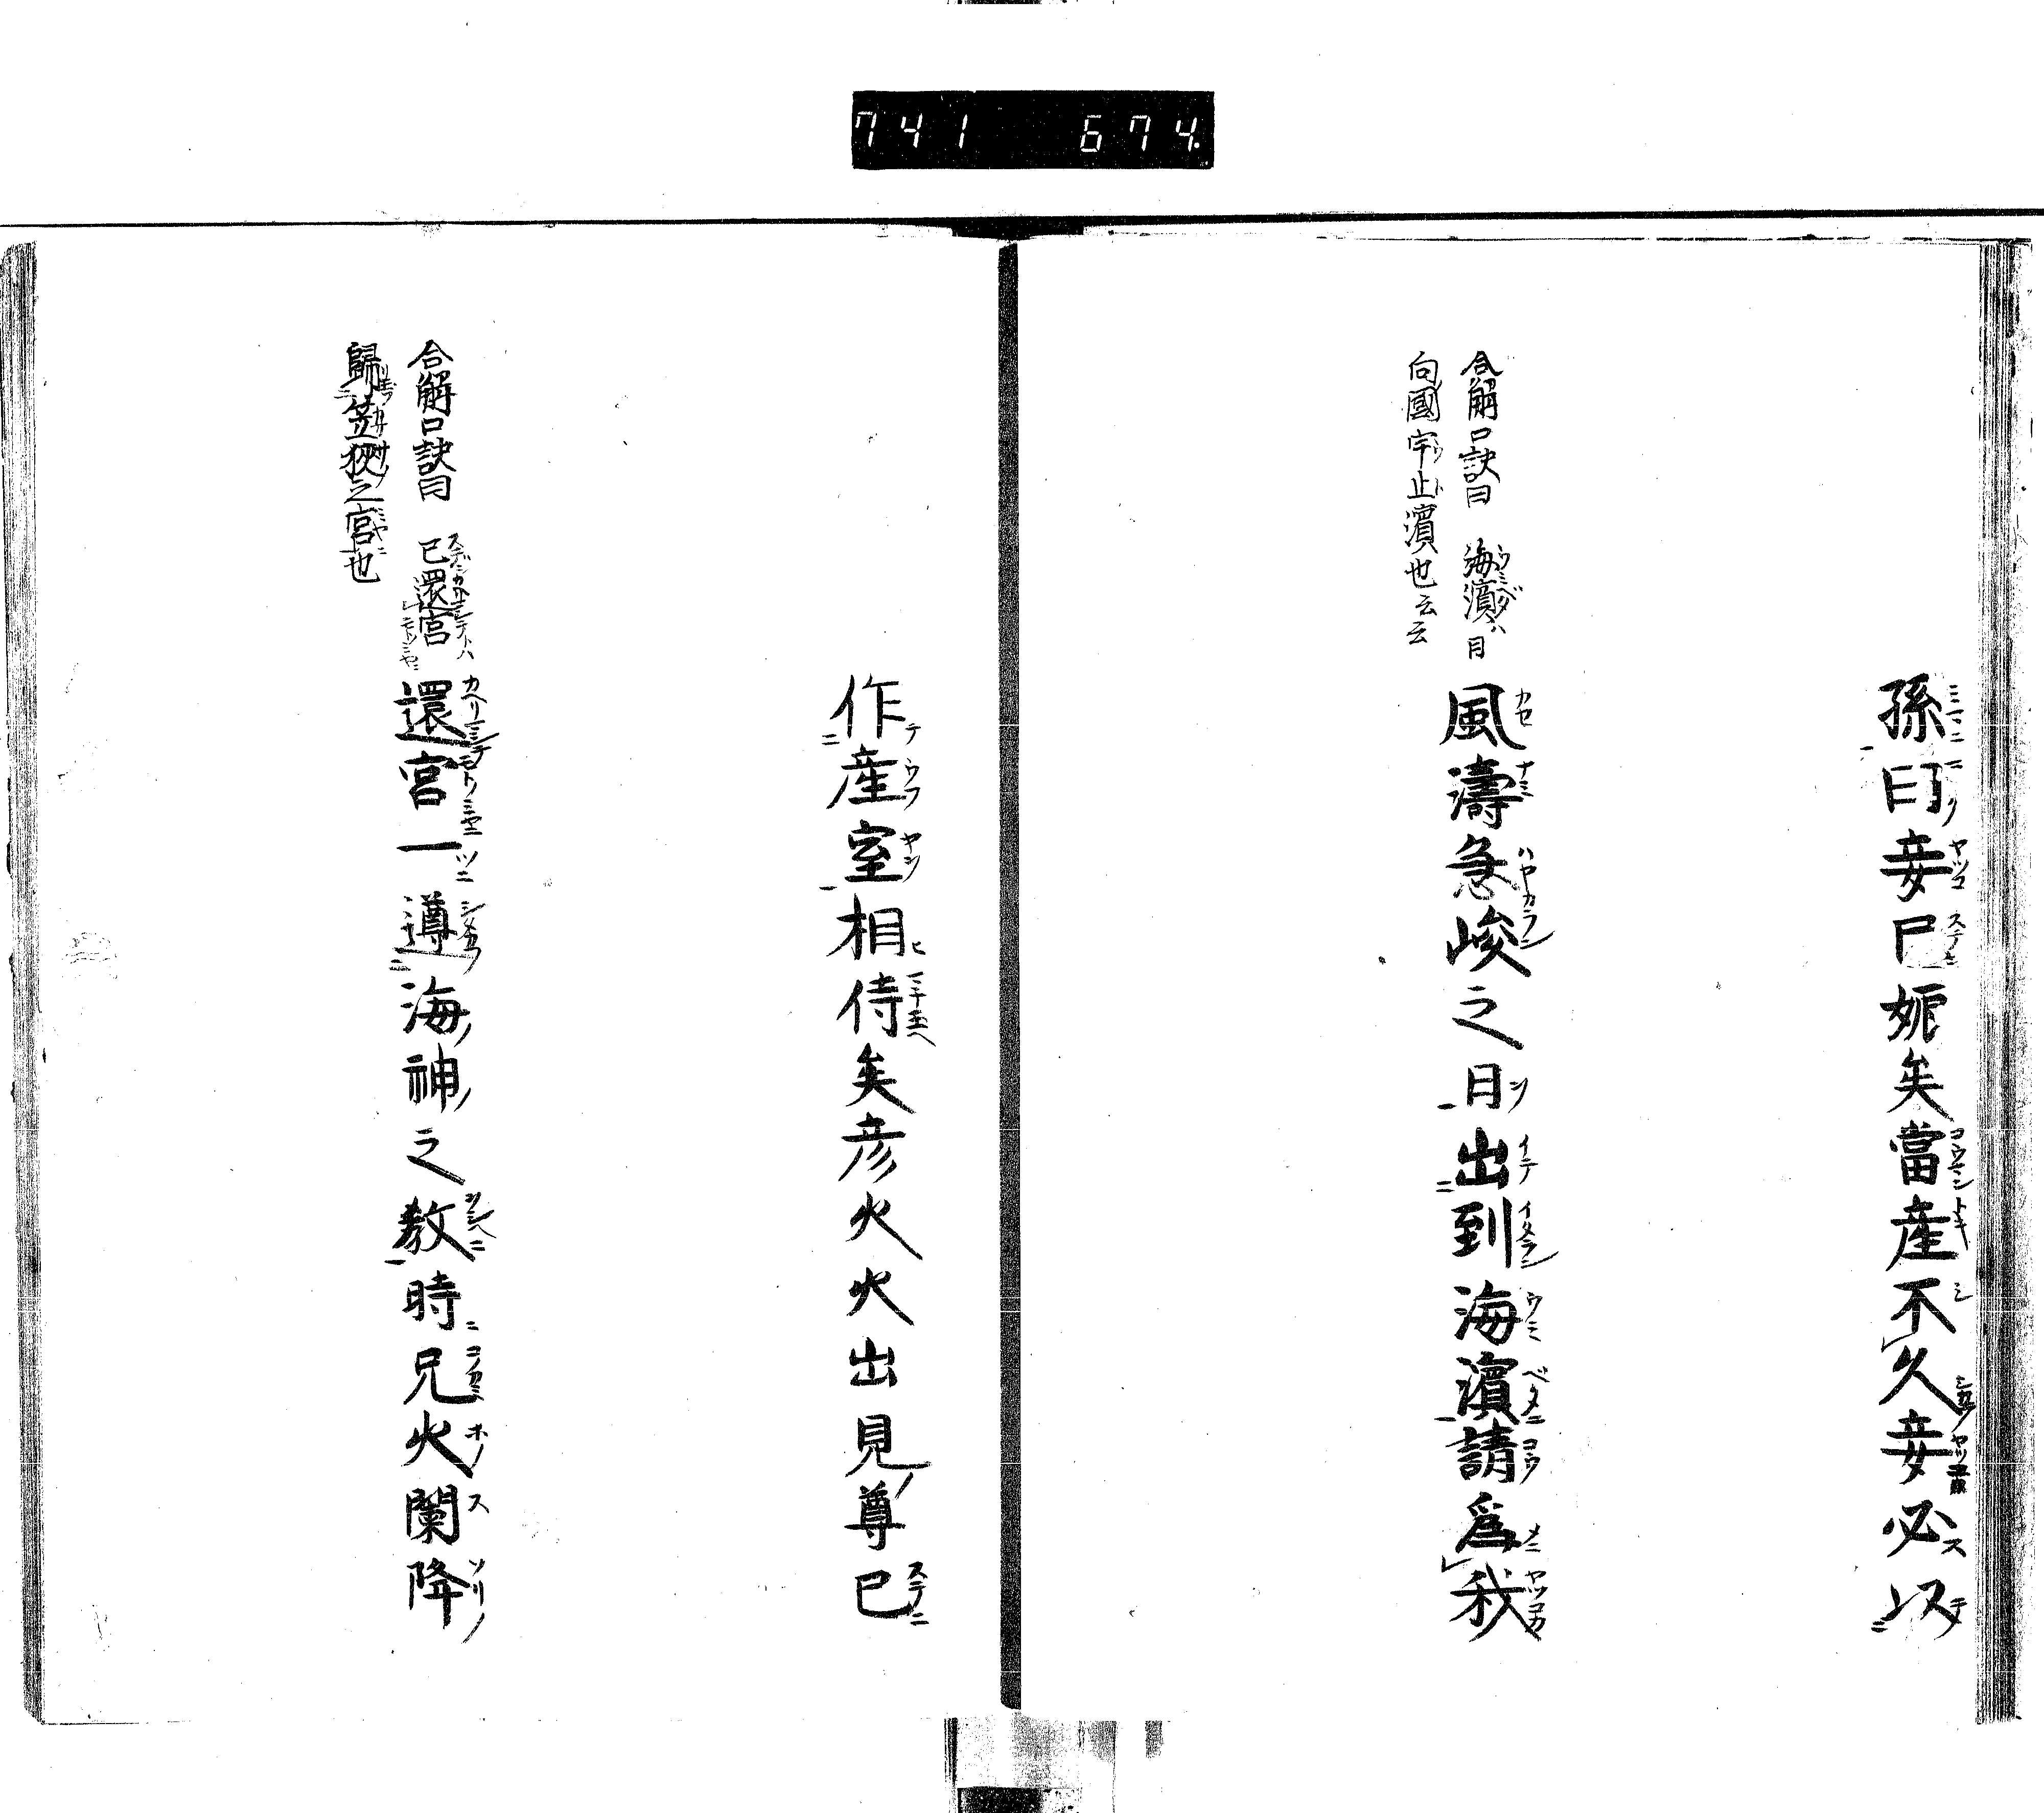 741 674
孫曰妾已娠矣當產不久妾必以
合解口訣曰 海濱ハ目
向國宇止濱也云云
風濤急峻之日出到海濱請爲我
作產室相侍矣彦火火出見尊已
合解口訣曰 已還宮
歸笠狹之宮也
還宮一遵海神之教時兄火闌降